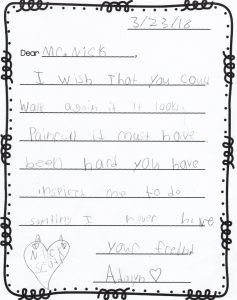 3/23/18
Dear Mr. Nick,
I wish that you could
walk again it it looks
Painfull it must have
been hard you have
inspierd me to do
somting I never have
your freind